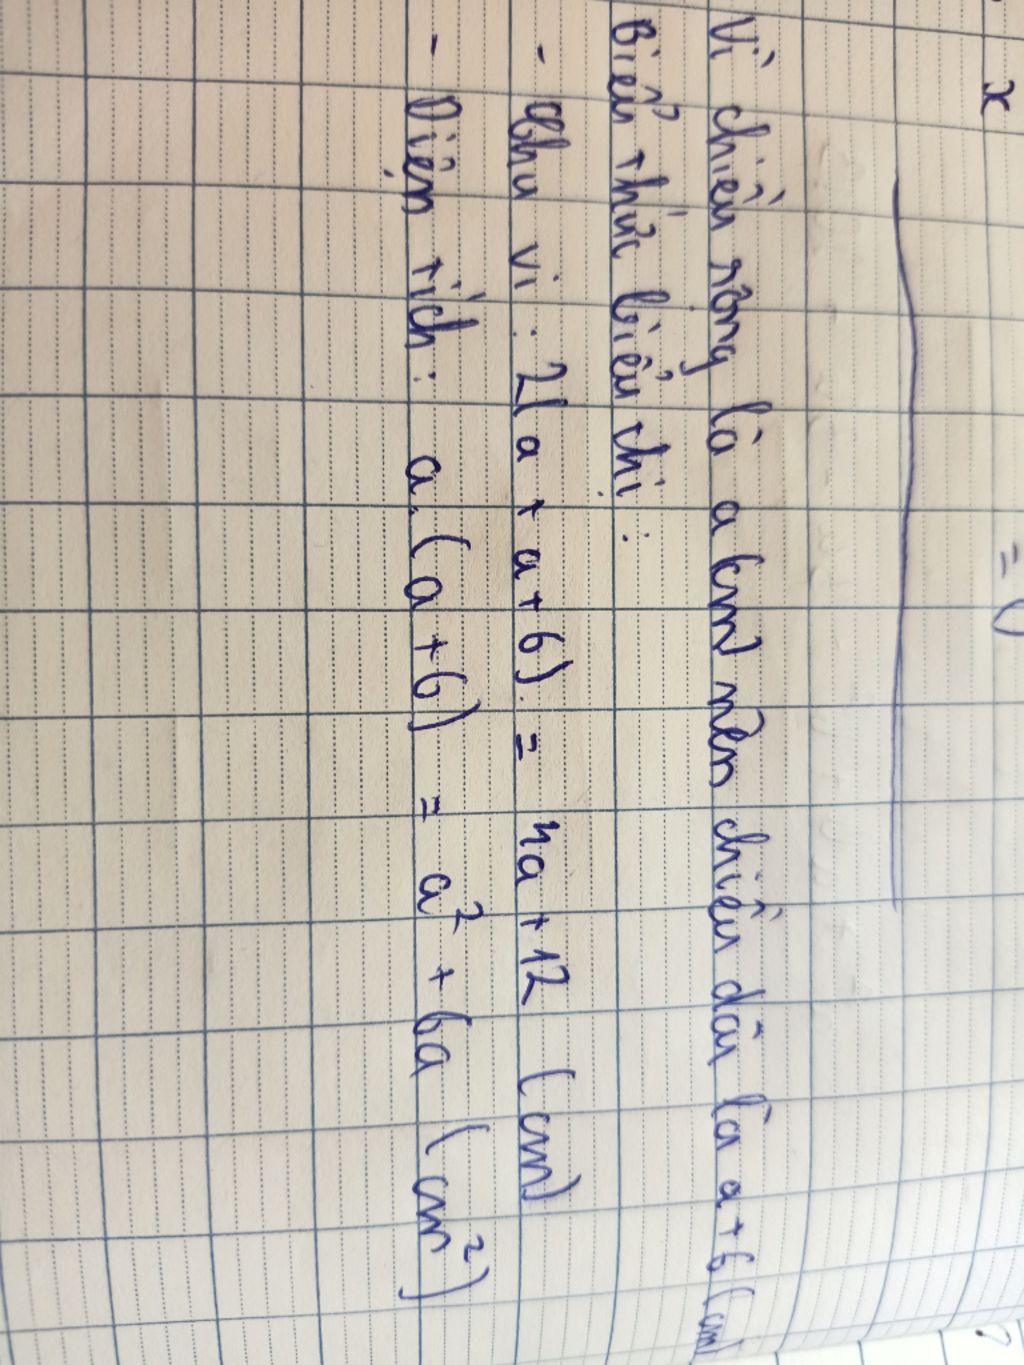 x
= 0
Vì chiều rộng là a (cm) nên chiều dài là a + 6 (cm)
Biểu thức biểu thị :
- Chu vi : 2(a + a + 6) = 4a + 12 (cm)
- Diện tích : a.(a + 6) = a² + 6a (cm²)